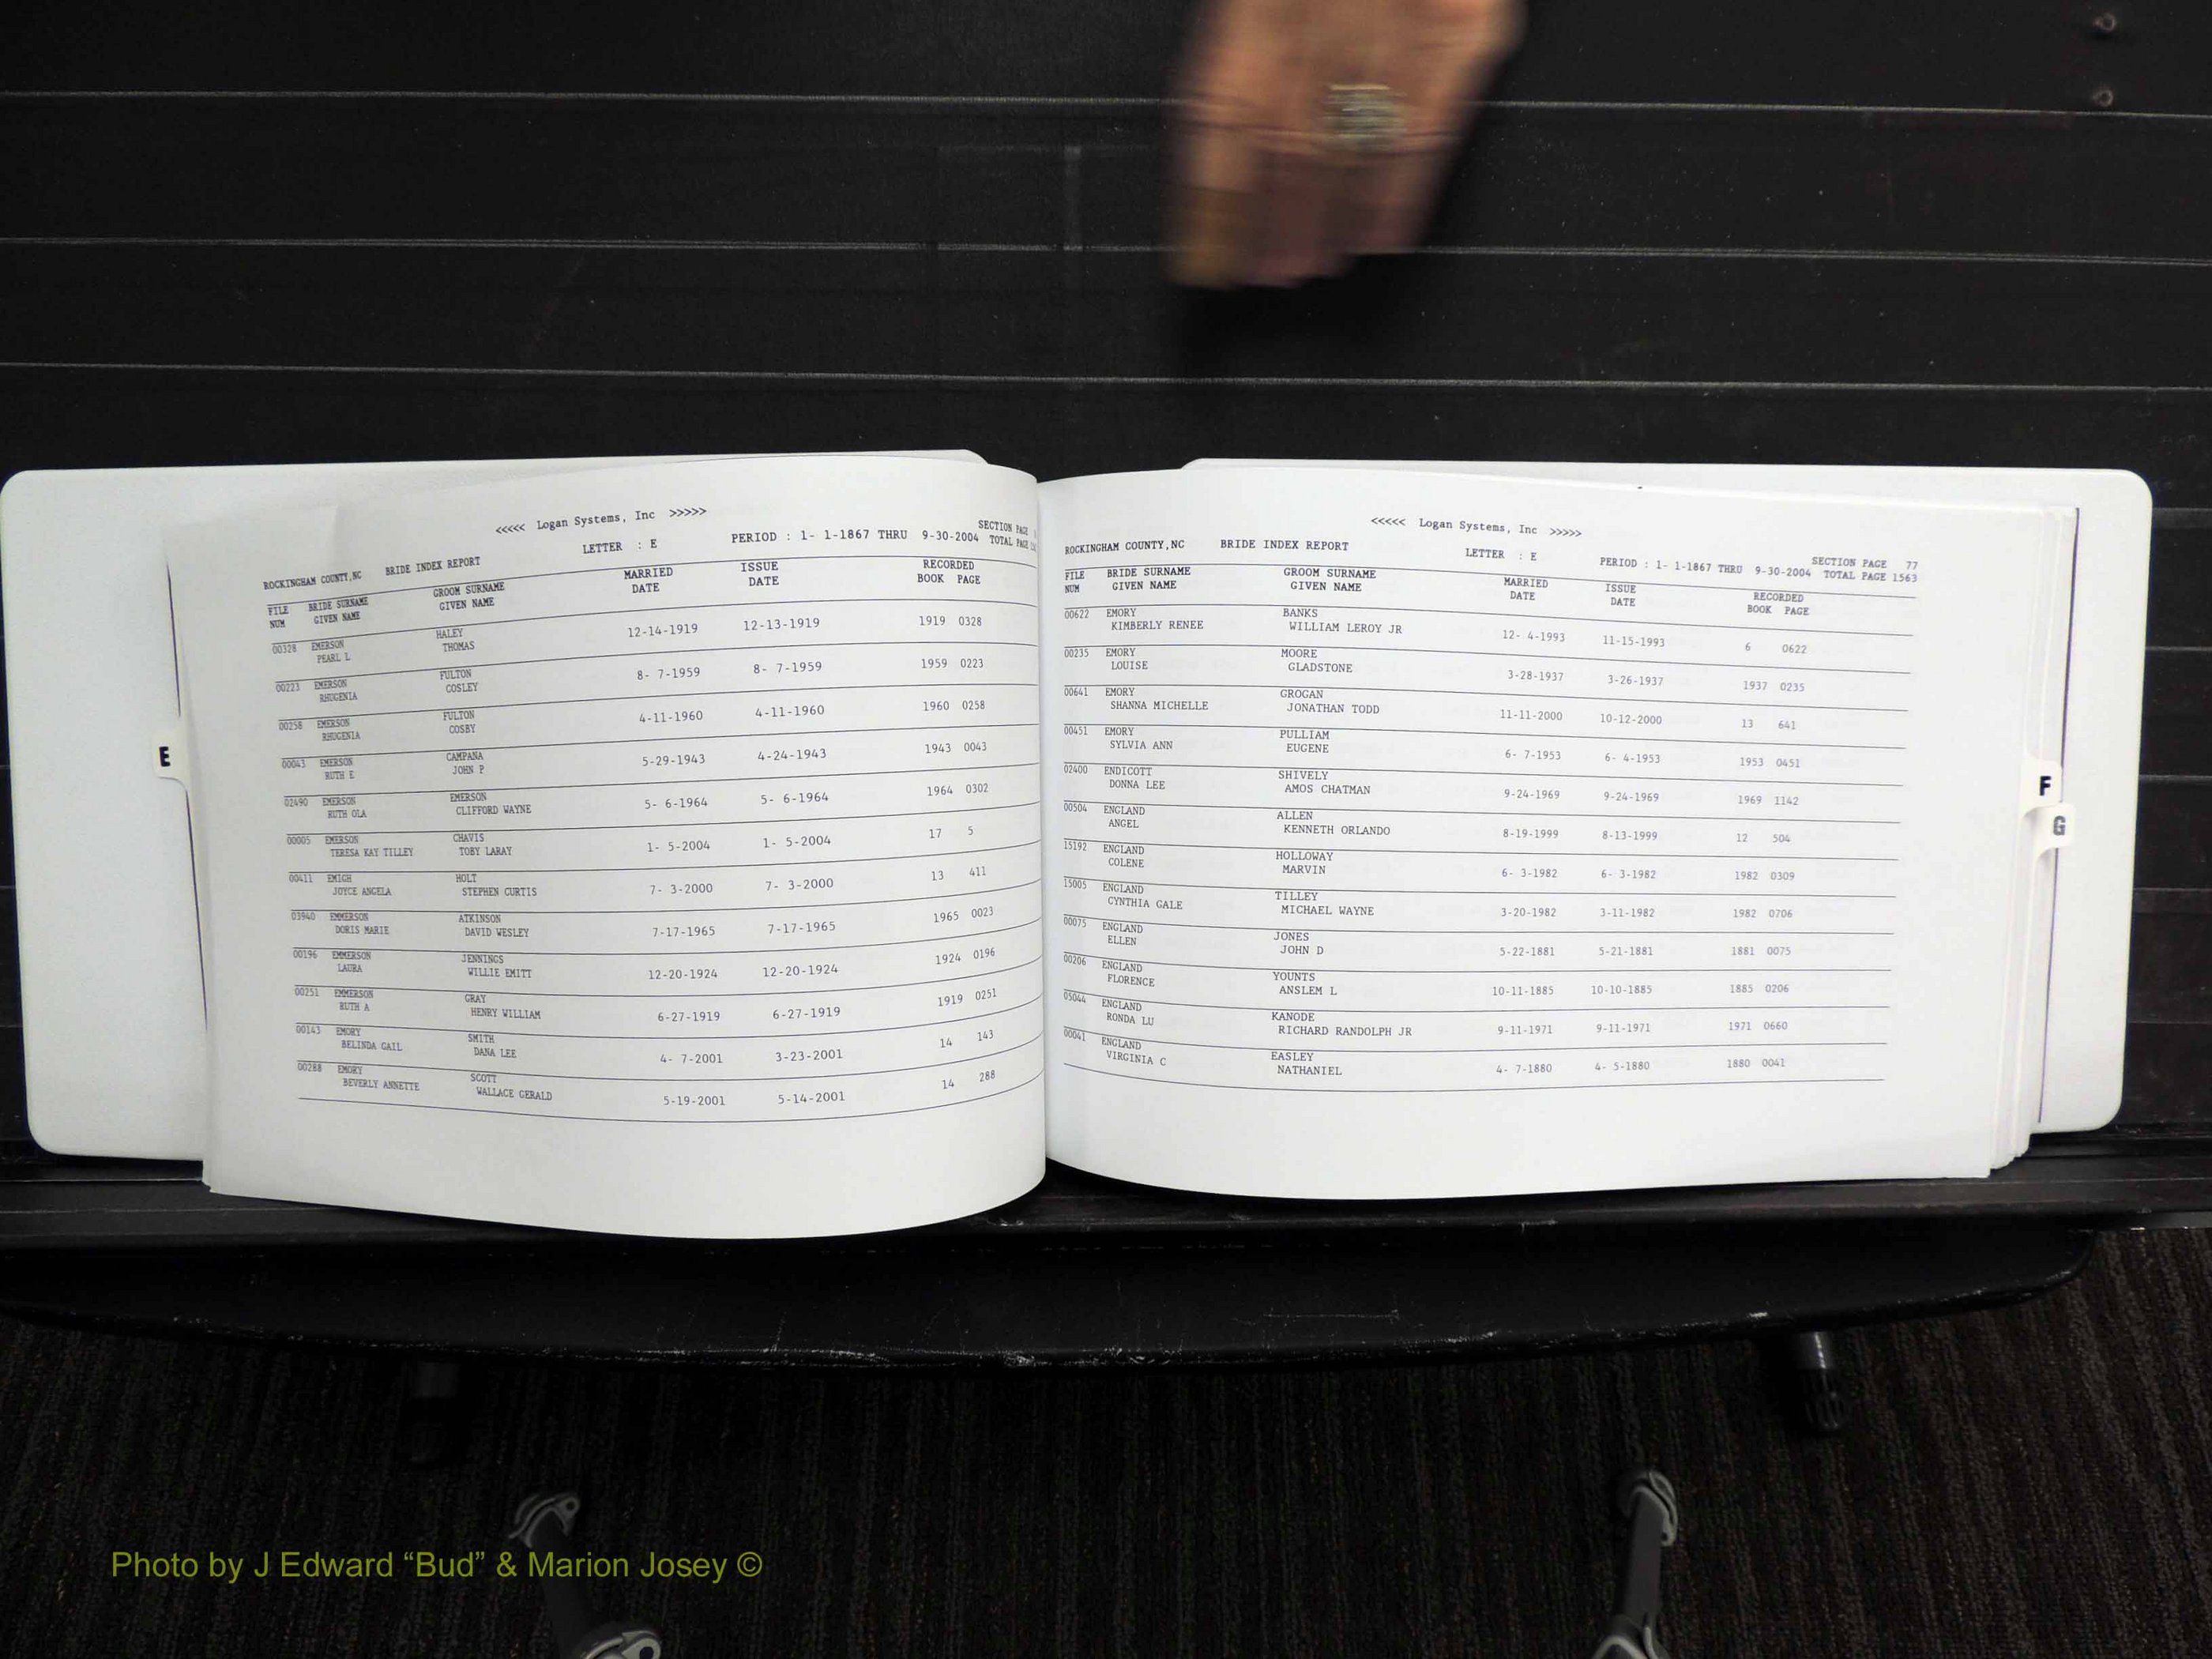 <<<<< Logan Systems, Inc >>>>>
SECTION PAGE
ROCKINGHAM COUNTY,NC BRIDE INDEX REPORT LETTER : E PERIOD : 1- 1-1867 THRU 9-30-2004 TOTAL PAGE
FILE BRIDE SURNAME GROOM SURNAME MARRIED ISSUE RECORDED
NUM GIVEN NAME GIVEN NAME DATE DATE BOOK PAGE
00328 EMERSON HALEY 12-14-1919 12-13-1919 1919 0328
PEARL L THOMAS
00223 EMERSON FULTON 8- 7-1959 8- 7-1959 1959 0223
RHUGENIA COSLEY
00258 EMERSON FULTON 4-11-1960 4-11-1960 1960 0258
RHUGENIA COSBY
00043 EMERSON CAMPANA 5-29-1943 4-24-1943 1943 0043
RUTH E JOHN P
02490 EMERSON EMERSON 5- 6-1964 5- 6-1964 1964 0302
RUTH OLA CLIFFORD WAYNE
00005 EMERSON CHAVIS 1- 5-2004 1- 5-2004 17 5
TERESA KAY TILLEY TOBY LARAY
00411 EMIGH HOLT 7- 3-2000 7- 3-2000 13 411
JOYCE ANGELA STEPHEN CURTIS
03940 EMMERSON ATKINSON 7-17-1965 7-17-1965 1965 0023
DORIS MARIE DAVID WESLEY
00196 EMMERSON JENNINGS 12-20-1924 12-20-1924 1924 0196
LAURA WILLIE EMITT
00251 EMMERSON GRAY 6-27-1919 6-27-1919 1919 0251
RUTH A HENRY WILLIAM
00143 EMORY SMITH 4- 7-2001 3-23-2001 14 143
BELINDA GAIL DANA LEE
00288 EMORY SCOTT 5-19-2001 5-14-2001 14 288
BEVERLY ANNETTE WALLACE GERALD
E
<<<<< Logan Systems, Inc >>>>>
SECTION PAGE 77
ROCKINGHAM COUNTY,NC BRIDE INDEX REPORT LETTER : E PERIOD : 1- 1-1867 THRU 9-30-2004 TOTAL PAGE 1563
FILE BRIDE SURNAME GROOM SURNAME MARRIED ISSUE RECORDED
NUM GIVEN NAME GIVEN NAME DATE DATE BOOK PAGE
00622 EMORY BANKS 12- 4-1993 11-15-1993 6 0622
KIMBERLY RENEE WILLIAM LEROY JR
00235 EMORY MOORE 3-28-1937 3-26-1937 1937 0235
LOUISE GLADSTONE
00641 EMORY GROGAN 11-11-2000 10-12-2000 13 641
SHANNA MICHELLE JONATHAN TODD
00451 EMORY PULLIAM 6- 7-1953 6- 4-1953 1953 0451
SYLVIA ANN EUGENE
02400 ENDICOTT SHIVELY 9-24-1969 9-24-1969 1969 1142
DONNA LEE AMOS CHATMAN
00504 ENGLAND ALLEN 8-19-1999 8-13-1999 12 504
ANGEL KENNETH ORLANDO
15192 ENGLAND HOLLOWAY 6- 3-1982 6- 3-1982 1982 0309
COLENE MARVIN
15005 ENGLAND TILLEY 3-20-1982 3-11-1982 1982 0706
CYNTHIA GALE MICHAEL WAYNE
00075 ENGLAND JONES 5-22-1881 5-21-1881 1881 0075
ELLEN JOHN D
00206 ENGLAND YOUNTS 10-11-1885 10-10-1885 1885 0206
FLORENCE ANSLEM L
05044 ENGLAND KANODE 9-11-1971 9-11-1971 1971 0660
RONDA LU RICHARD RANDOLPH JR
00041 ENGLAND EASLEY 4- 7-1880 4- 5-1880 1880 0041
VIRGINIA C NATHANIEL
F
G
Photo by J Edward “Bud” & Marion Josey ©